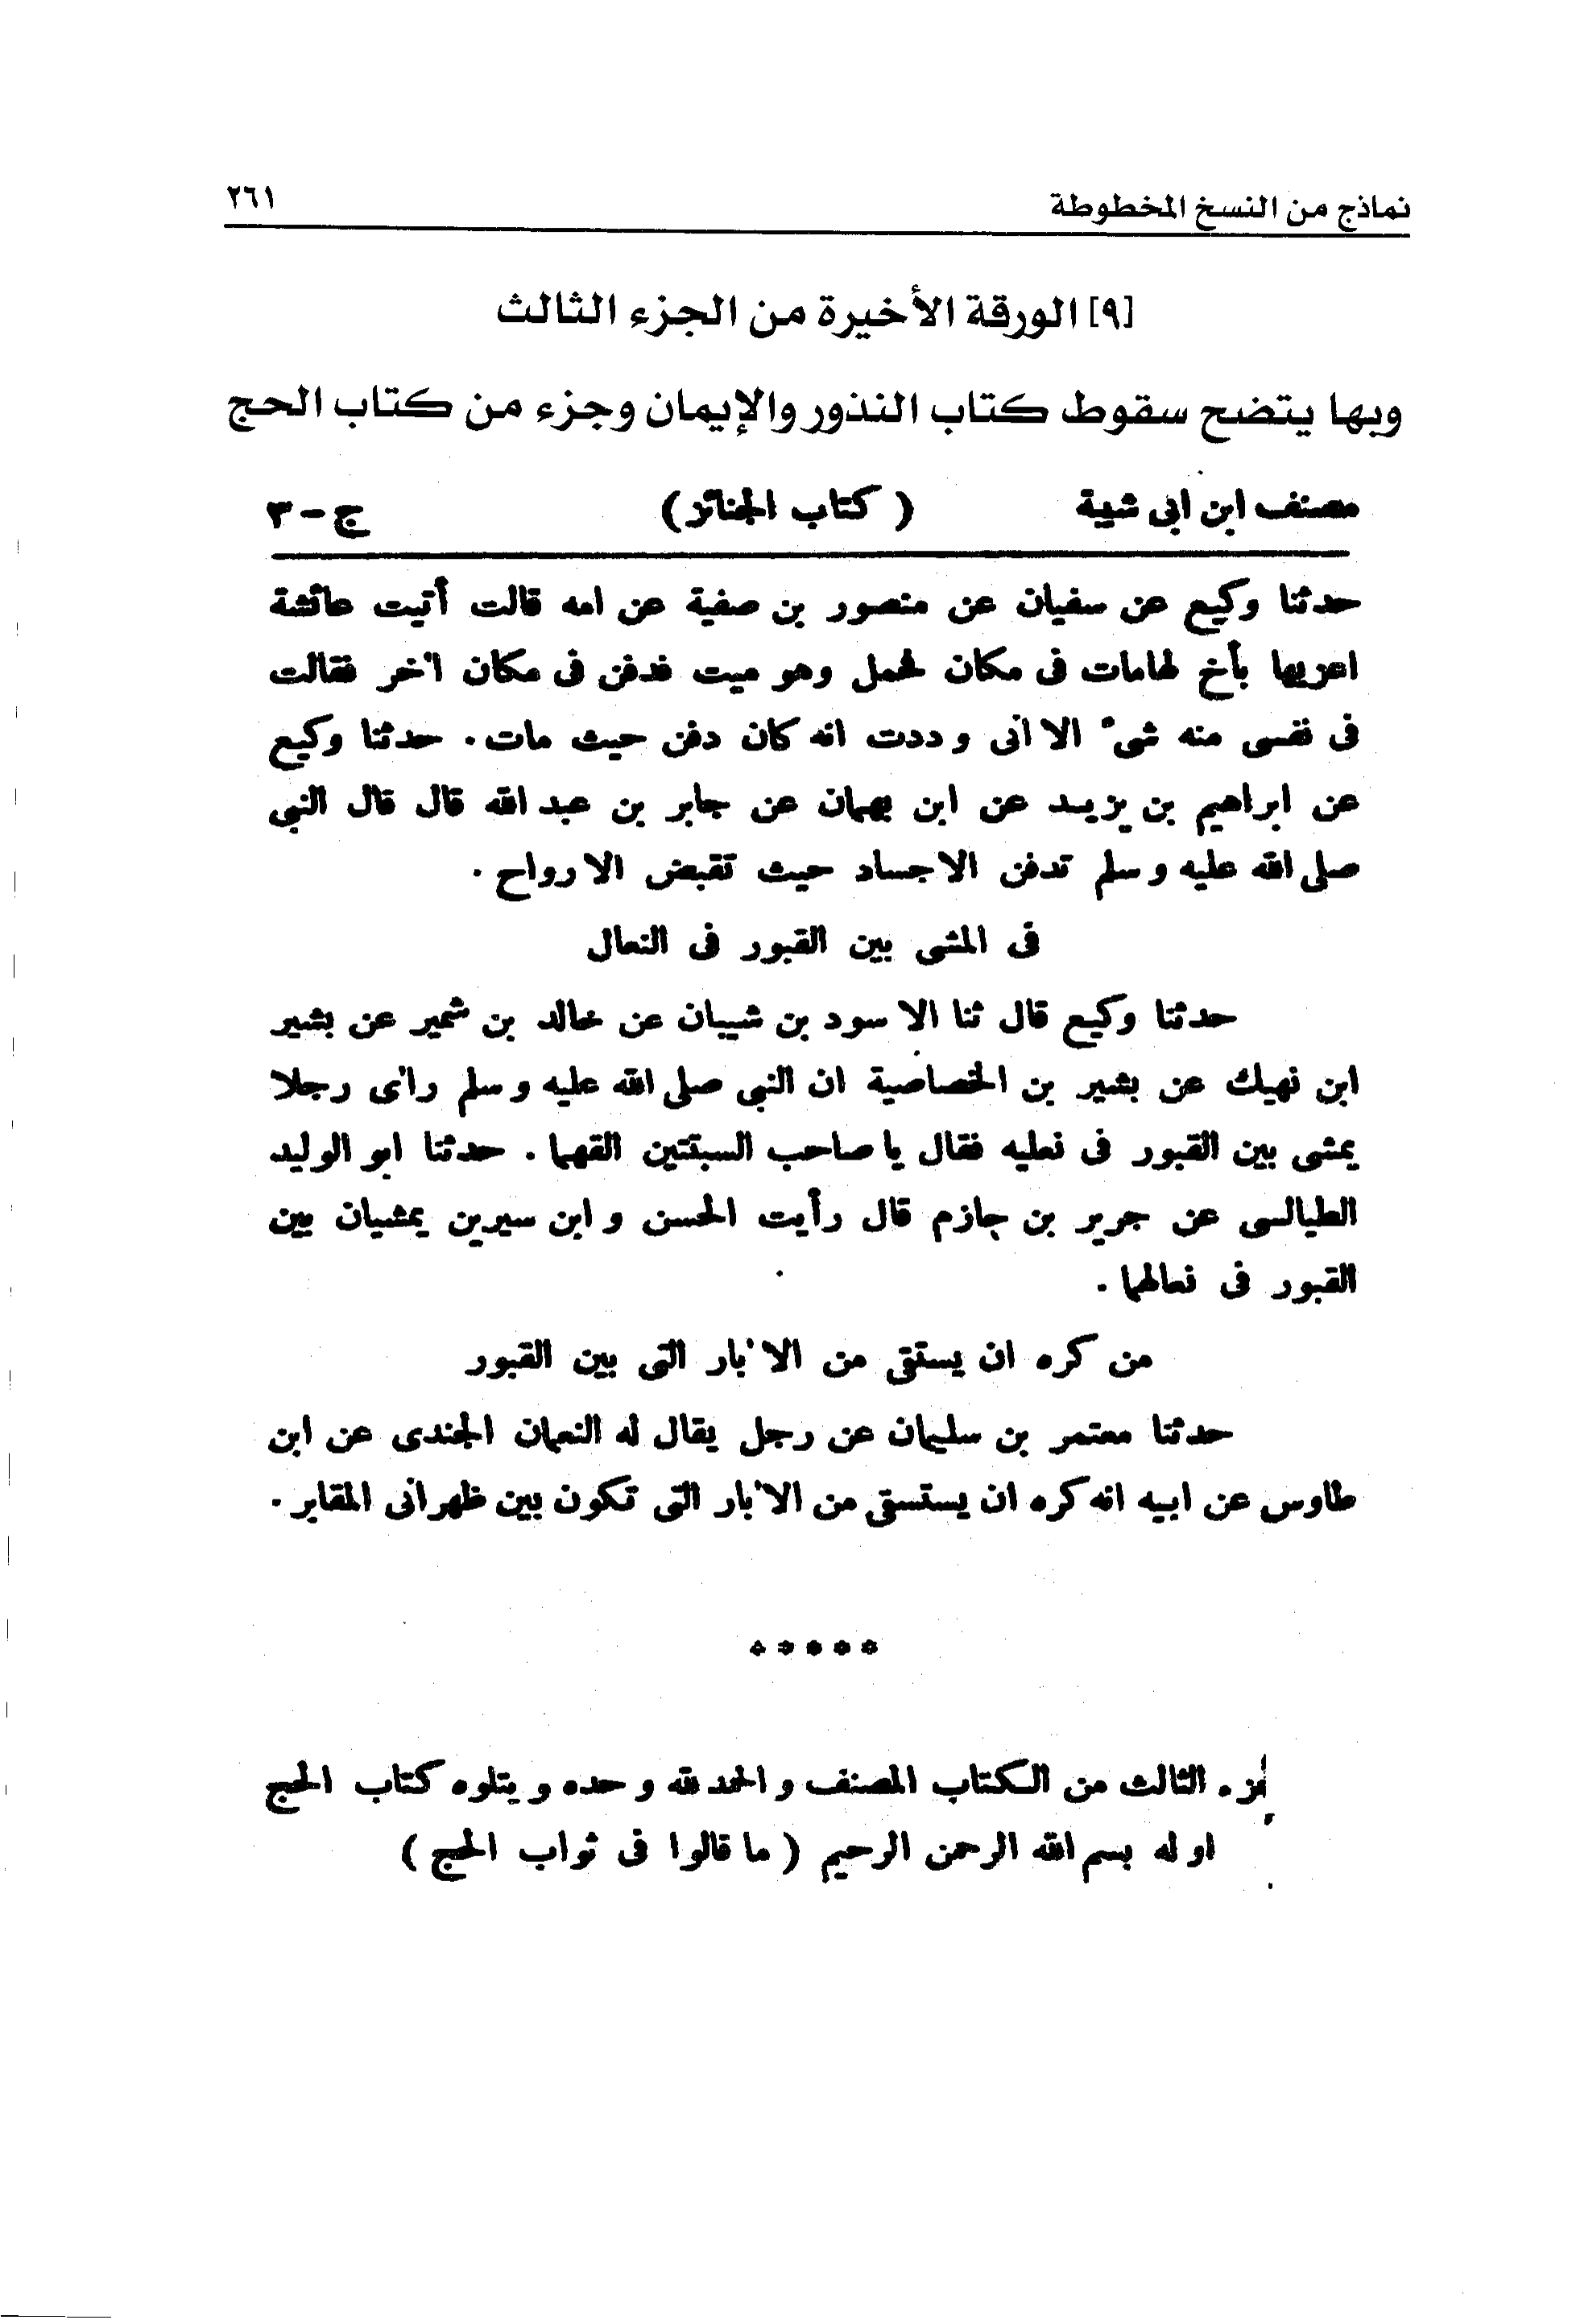 نماذج من النسخ المخطوطة ٢٦١
[٩] الورقة الأخيرة من الجزء الثالث
وبها يتضح سقوط كتاب النذور والإيمان وجزء من كتاب الحج
مصنف ابن ابى شيبة ( كتاب الجنائز ) ج - ٣
حدثنا وكيع عن سفيان عن منصور بن صفية عن امه قالت أتيت عائشة
اعزيها بأخ لها مات فى مكان فحمل وهو ميت فدفن فى مكان اٰخر فقالت
فى نفسى منه شىء الا انى و ددت انه كان دفن حيث مات . حدثنا وكيع
عن ابراهيم بن يزيد عن ابن بهمان عن جابر بن عبد الله قال قال النبى
صلى الله عليه و سلم تدفن الاجساد حيث تقبض الارواح .
فى المشى بين القبور فى النعال
حدثنا وكيع قال ثنا الاسود بن شيبان عن خالد بن شمير عن بشير
ابن نهيك عن بشير بن الخصاصية ان النبى صلى الله عليه و سلم راٰى رجلا
يمشى بين القبور فى نعليه فقال يا صاحب السبتتين القهما . حدثنا ابو الوليد
الطيالسى عن جرير بن جازم قال رأيت الحسن و ابن سيرين يمشيان بين
القبور فى نعالهما .
من كره ان يستقى من الاٰبار التى بين القبور
حدثنا معتمر بن سليمان عن رجل يقال له النعمان الجندى عن ابن
طاوس عن ابيه انه كره ان يستسقى من الاٰبار التى تكون بين ظهرانى المقابر .
*****
الثالث من الكتاب المصنف و الحمد لله و حده و يتلوه كتاب الحج
اوله بسم الله الرحمن الرحيم ( ما قالوا فى ثواب الحج )